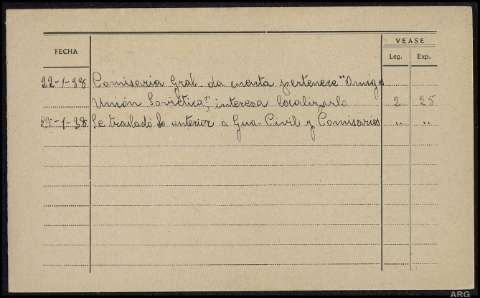 FECHA
VEASE
Leg. Exp.
22-1-38 Comisaria Gral. da cuenta pertenece "Amigos
Unión Soviética" interesa localizarlo 2 25
-1-38 Se trasladó lo anterior a Gua. Civil y Comisarios " "
ARG